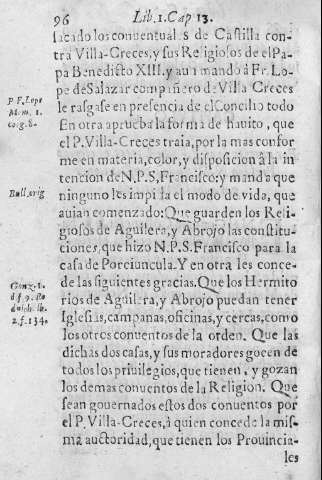 96 Lib. 1. Cap 13.
sacado los conventuales de Castilla con-
tra Villa-Creces, y sus Religiosos de el Pa-
pa Benedicto XIII. y aun mandò â Fr. Lo-
pe de Salazar compañero de Villa Creces
le rasgase en presencia de el Concilio todo
En otra aprueba la forma de hauito, que
el P. Villa-Creces traia, por la mas confor
me en materia, color, y disposicion â la in
tencion de N.P.S. Francisco: y manda que
ninguno les impi la el modo de vida, que
auian comenzado: Que guarden los Reli-
giosos de Aguilera, y Abrojo las constitu-
ciones, que hizo N.P.S. Francisco para la
casa de Porciuncula. Y en otra les conce-
de las siguientes gracias. Que los Hermito
rios de Aguilera, y Abrojo puedan tener
Iglesias, campanas, oficinas, y cercas, como
los otros conuentos de la orden. Que las
dichas dos casas, y sus moradores gocen de
todos los priuilegios, que tienen, y gozan
los demas conuentos de la Religion. Que
sean gouernados estos dos conuentos por
el P. Villa-Creces, â quien concede la mis-
ma auctoridad, que tienen los Prouincia-
les
P F. Lope
Mem. 1.
corg. 8.
Bull. orig
Gonz. 1.
2. f. 134.